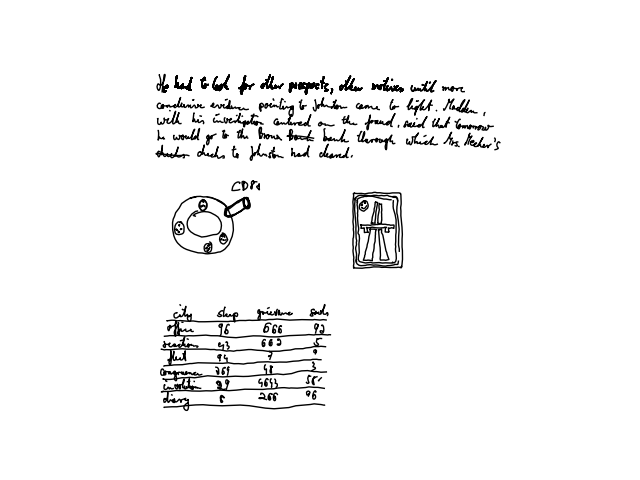 He had to look for other prospects, other motives until more
conclusive evidence pointing to Johnston came to light. Madden,
with his investigation centered on the fraud, said that tomorrow
he would go to the Bronx bank through which Mrs. Meeker's
checks to Johnston had cleared.
CD8a
city ship grievance
office 96 566 92
reactions 43 662 5
fleet 94 7 9
congruence 269 48 3
involution 29 4643
diary 8 266 96